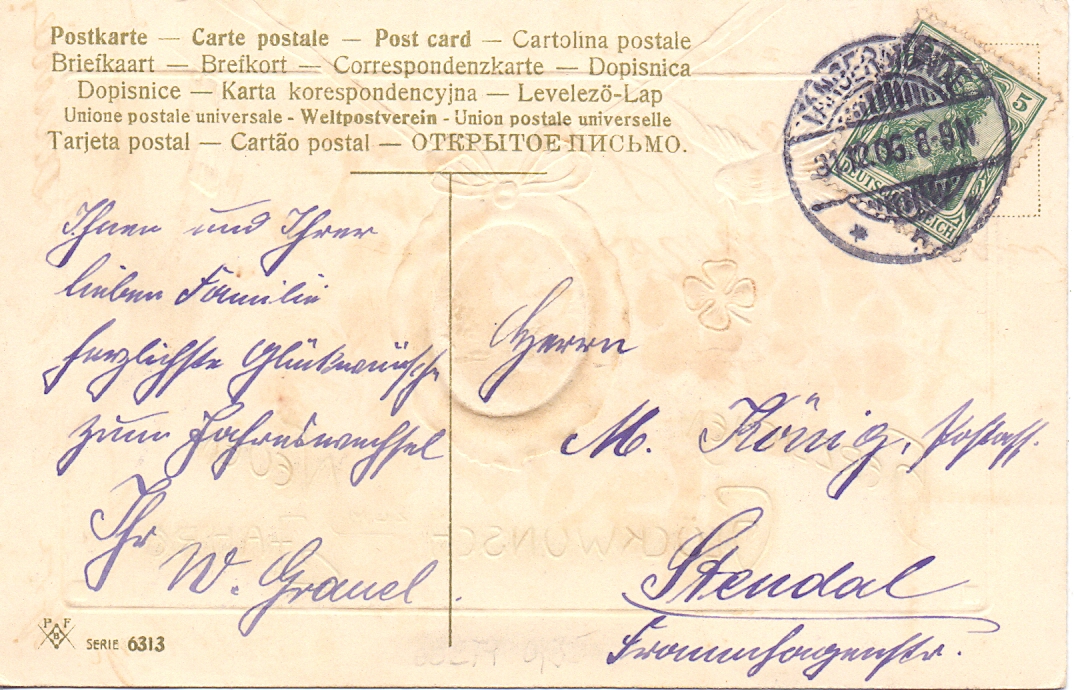 Postkarte — Carte postale — Post card — Cartolina postale
Briefkaart — Brefkort — Correspondenzkarte — Dopisnica
Dopisnice — Karta korespondencyjna — Levelezö-Lap
Unione postale universale - Weltpostverein - Union postale universelle
Tarjeta postal — Cartão postal — ОТКРЫТОЕ ПИСЬМО.
TANGERMÜNDE
31.12.05. 8-9N.
5
DEUTSCHES REICH
Ihnen und Ihrer
lieben Familie
herzlichste Glückwünsche
zum Jahreswechsel
Ihr
W. Grauel.
Herrn
M. König, Postass.
Stendal
Frommhagenstr.
PF
B
SERIE 6313